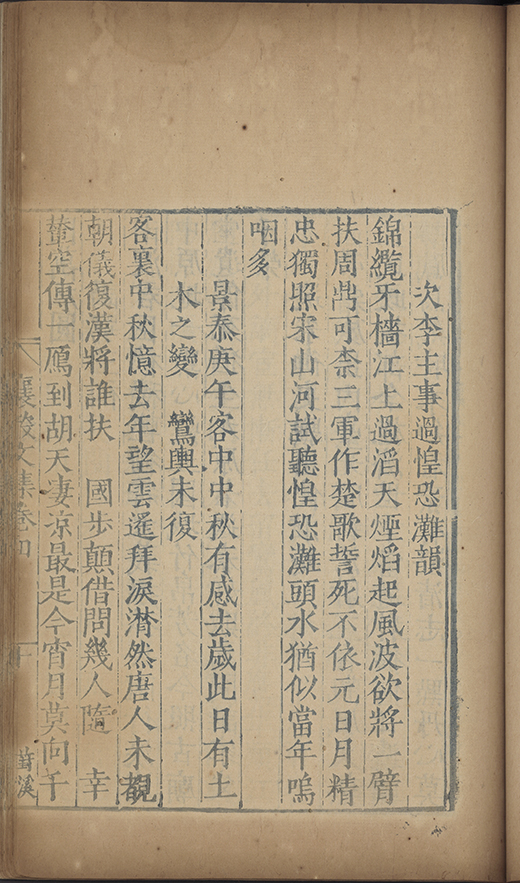 次李主事過惶恐灘韻
錦纜牙檣江上過滔天煙熖起風波欲將一臂
扶周鼎可柰三軍作楚歌誓死不依元日月精
忠獨照宋山河試聽惶恐灘頭水猶似當年嗚
咽多
景泰庚午客中中秋有感去歲此日有土
木之變　鸞輿未復
客裏中秋憶去年望雲遥拜淚潸然唐人未覩
朝儀復漢將誰扶　國步顛借問幾人隨　幸
輦空傳一鴈到胡天凄凉最是今宵月莫向千
襄毅文集卷四